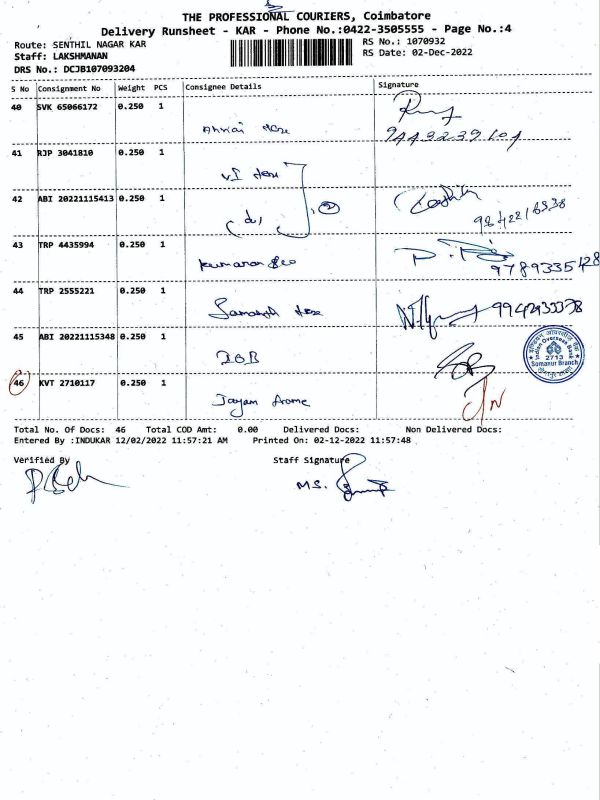 THE PROFESSIONAL COURIERS, Coimbatore
Delivery Runsheet - KAR - Phone No.:0422-3505555 - Page No.:4
Route: SENTHIL NAGAR KAR
RS No.: 1070932
Staff: LAKSHMANAN
RS Date: 02-Dec-2022
DRS No.: DCJB107093204
S No Consignment No Weight PCS Consignee Details Signature
40 SVK 65066172 0.250 1
41 RJP 3041810 0.250 1
42 ABI 20221115413 0.250 1
2
43 TRP 4435994 0.250 1
9789335428
44 TRP 2555221 0.250 1
45 ABI 20221115348 0.250 1
IOB
Indian Overseas Bank
2713
Somanur Branch
46 KVT 2710117 0.250 1
Jayam
Total No. Of Docs: 46 Total COD Amt: 0.00 Delivered Docs: Non Delivered Docs:
Entered By :INDUKAR 12/02/2022 11:57:21 AM Printed On: 02-12-2022 11:57:48
Verified By Staff Signature
M.S.